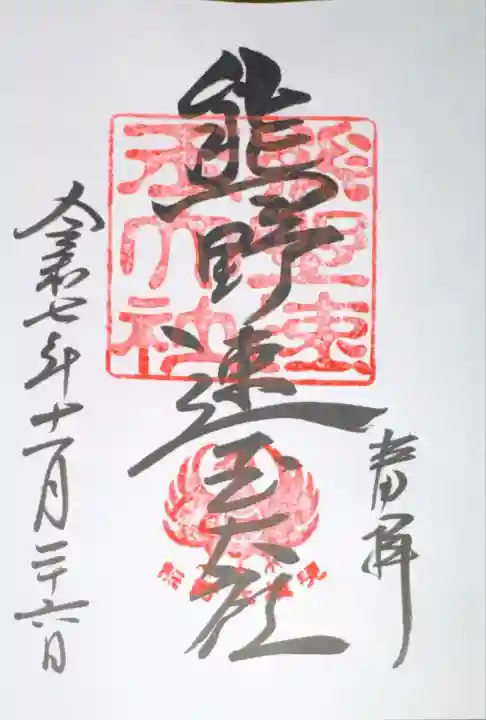 奉拝
熊野速玉大社
熊野速
玉大社
令和七年十一月二十六日